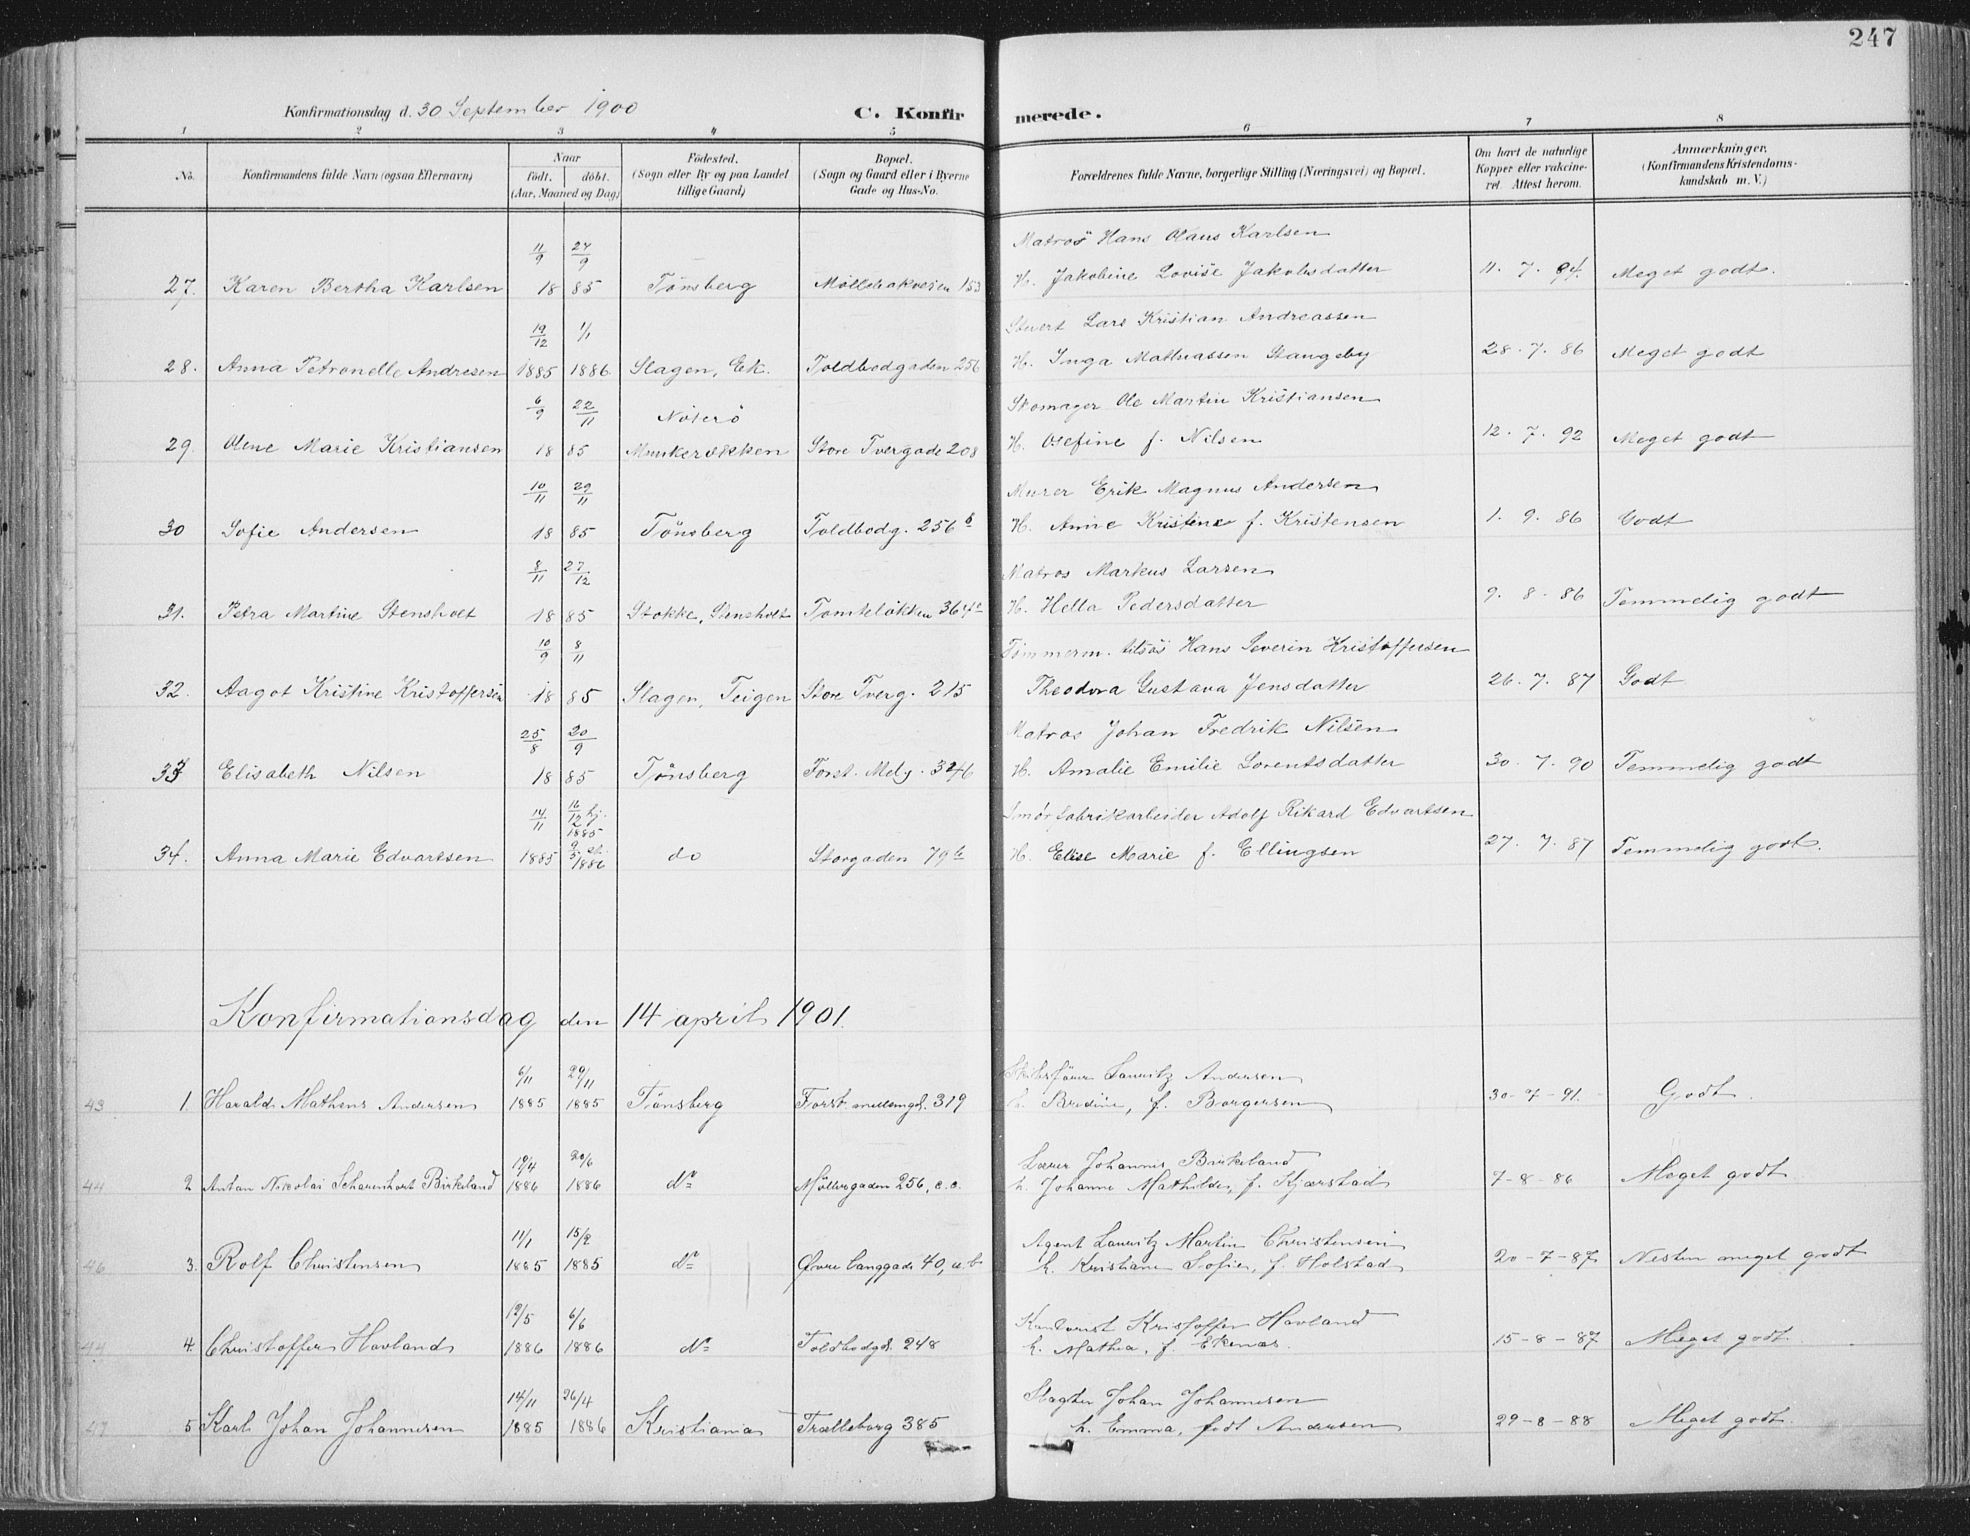 247
Konfirmationsdag d. 30 September 1900 C. Konfirmerede.
1 2 3 4 5 6 7 8
No. Konfirmandens fulde Navn (ogsaa Efternavn) Naar født. døbt. (Aar, Maaned og Dag) Fødested. (Sogn eller By og paa Landet tillige Gaard) Bopæl. (Sogn og Gaard eller i Byerne Gade og Hus-No. Forældrenes fulde Navne, borgerlige Stilling (Næringsvei) og Bopæl. Om havt de naturlige Kopper eller vakcineret. Attest herom. Anmærkninger. (Konfirmandens Kristendomskundskab m. V.)
11/9 27/9 Matros Hans Olaus Karlsen
27. Karen Bertha Karlsen 18 85 Tønsberg 153 H. Jakobine Lovise Jakobsdatter 11. 7. 94. Meget godt.
19/12 1/1 Stuert Lars Kristian Andreassen
28. Anna Petronelle Andresen 1885 1886 Slagen, Ek. Toldbodgaden 256 H. Inga Mathiassen Stangeby 28. 7. 86 Meget godt
6/9 22/11 Nøterø Skomager Ole Martin Kristiansen
29. Olene Marie Kristiansen 18 85 Munkerækken Store Tvergade 208 H. Osefine f. Nilsen 12. 7. 92 Meget godt
10/11 29/11 Murer Erik Magnus Andersen
30 Sofie Andersen 18 85 Tønsberg Toldbodg. 256 b H. Anne Kristine f. Kristensen 1. 9. 86 Godt
8/11 27/12 Matros Markus Larsen
31. Petra Martine Stensholt 18 85 Stokke, Stensholt Tomteløkken 364 H. Hella Pedersdatter 9. 8 - 86 Temmelig godt
10/9 8/11 Tømmerm. tilsøs Hans Severin Kristoffersen
32. Aagot Kristine Kristoffersen 18 85 Slagen, Teigen Store Tverg. 215 Theodora Gustava Jensdatter 26. 7. 87 Godt
25/8 20/9 Matros Johan Fredrik Nilsen
33 Elisabeth Nilsen 18 85 Tønsberg Forst. Melg. H. Amalie Emilie Lorentsdatter 30. 7. 90 Temmelig godt
14/11 16/12 hj. 1885 Smørfabrikarbeider Adolf Rikard Edvartsen
34. Anna Marie Edvartsen 1885 1886 do Storgaden 79 b H. Elise Marie f. Ellingsen 27. 7. 87 Temmelig godt.
Konfirmationsdag den 14 april 1901.
6/11 29/11 Skibsfører Lauritz Andersen
43 1. Harald Matheus Andersen 1885 1885 Tønsberg Forst. mellemgd. 319 h. Bredine, f. Borgersen 30-7-91. Godt.
19/4 20/6 Lærer Johannes Birkeland
44 2 Anton Nicolai Scharenhort Birkeland 1886 1886 do Møllergaden 256, c.c. h. Johanne Mathilde, f. Kjærstad 7-8-86 Meget godt
11/1 15/2 Agent Lauritz Martin Christensen
46 3. Rolf Christensen 1885 1885 do Øvre Langgade 40, a.b. h. Kristiane Sofie, f. Holstad 20-7-87 Nesten meget godt
12/5 6/6 Kontorist Kristoffer Havland
44 4. Christoffer Havland 1886 1886 do Toldbodgd. 248 h. Mathea, f. Ekenæs. 15-8-87 Meget godt.
14/11 26/4 Slagter Johan Johannesen
47 5 Karl Johan Johannesen 1885 1886 Kristiania Trælleborg 385 h. Emma, født Andersen 29-8-88 Meget godt.